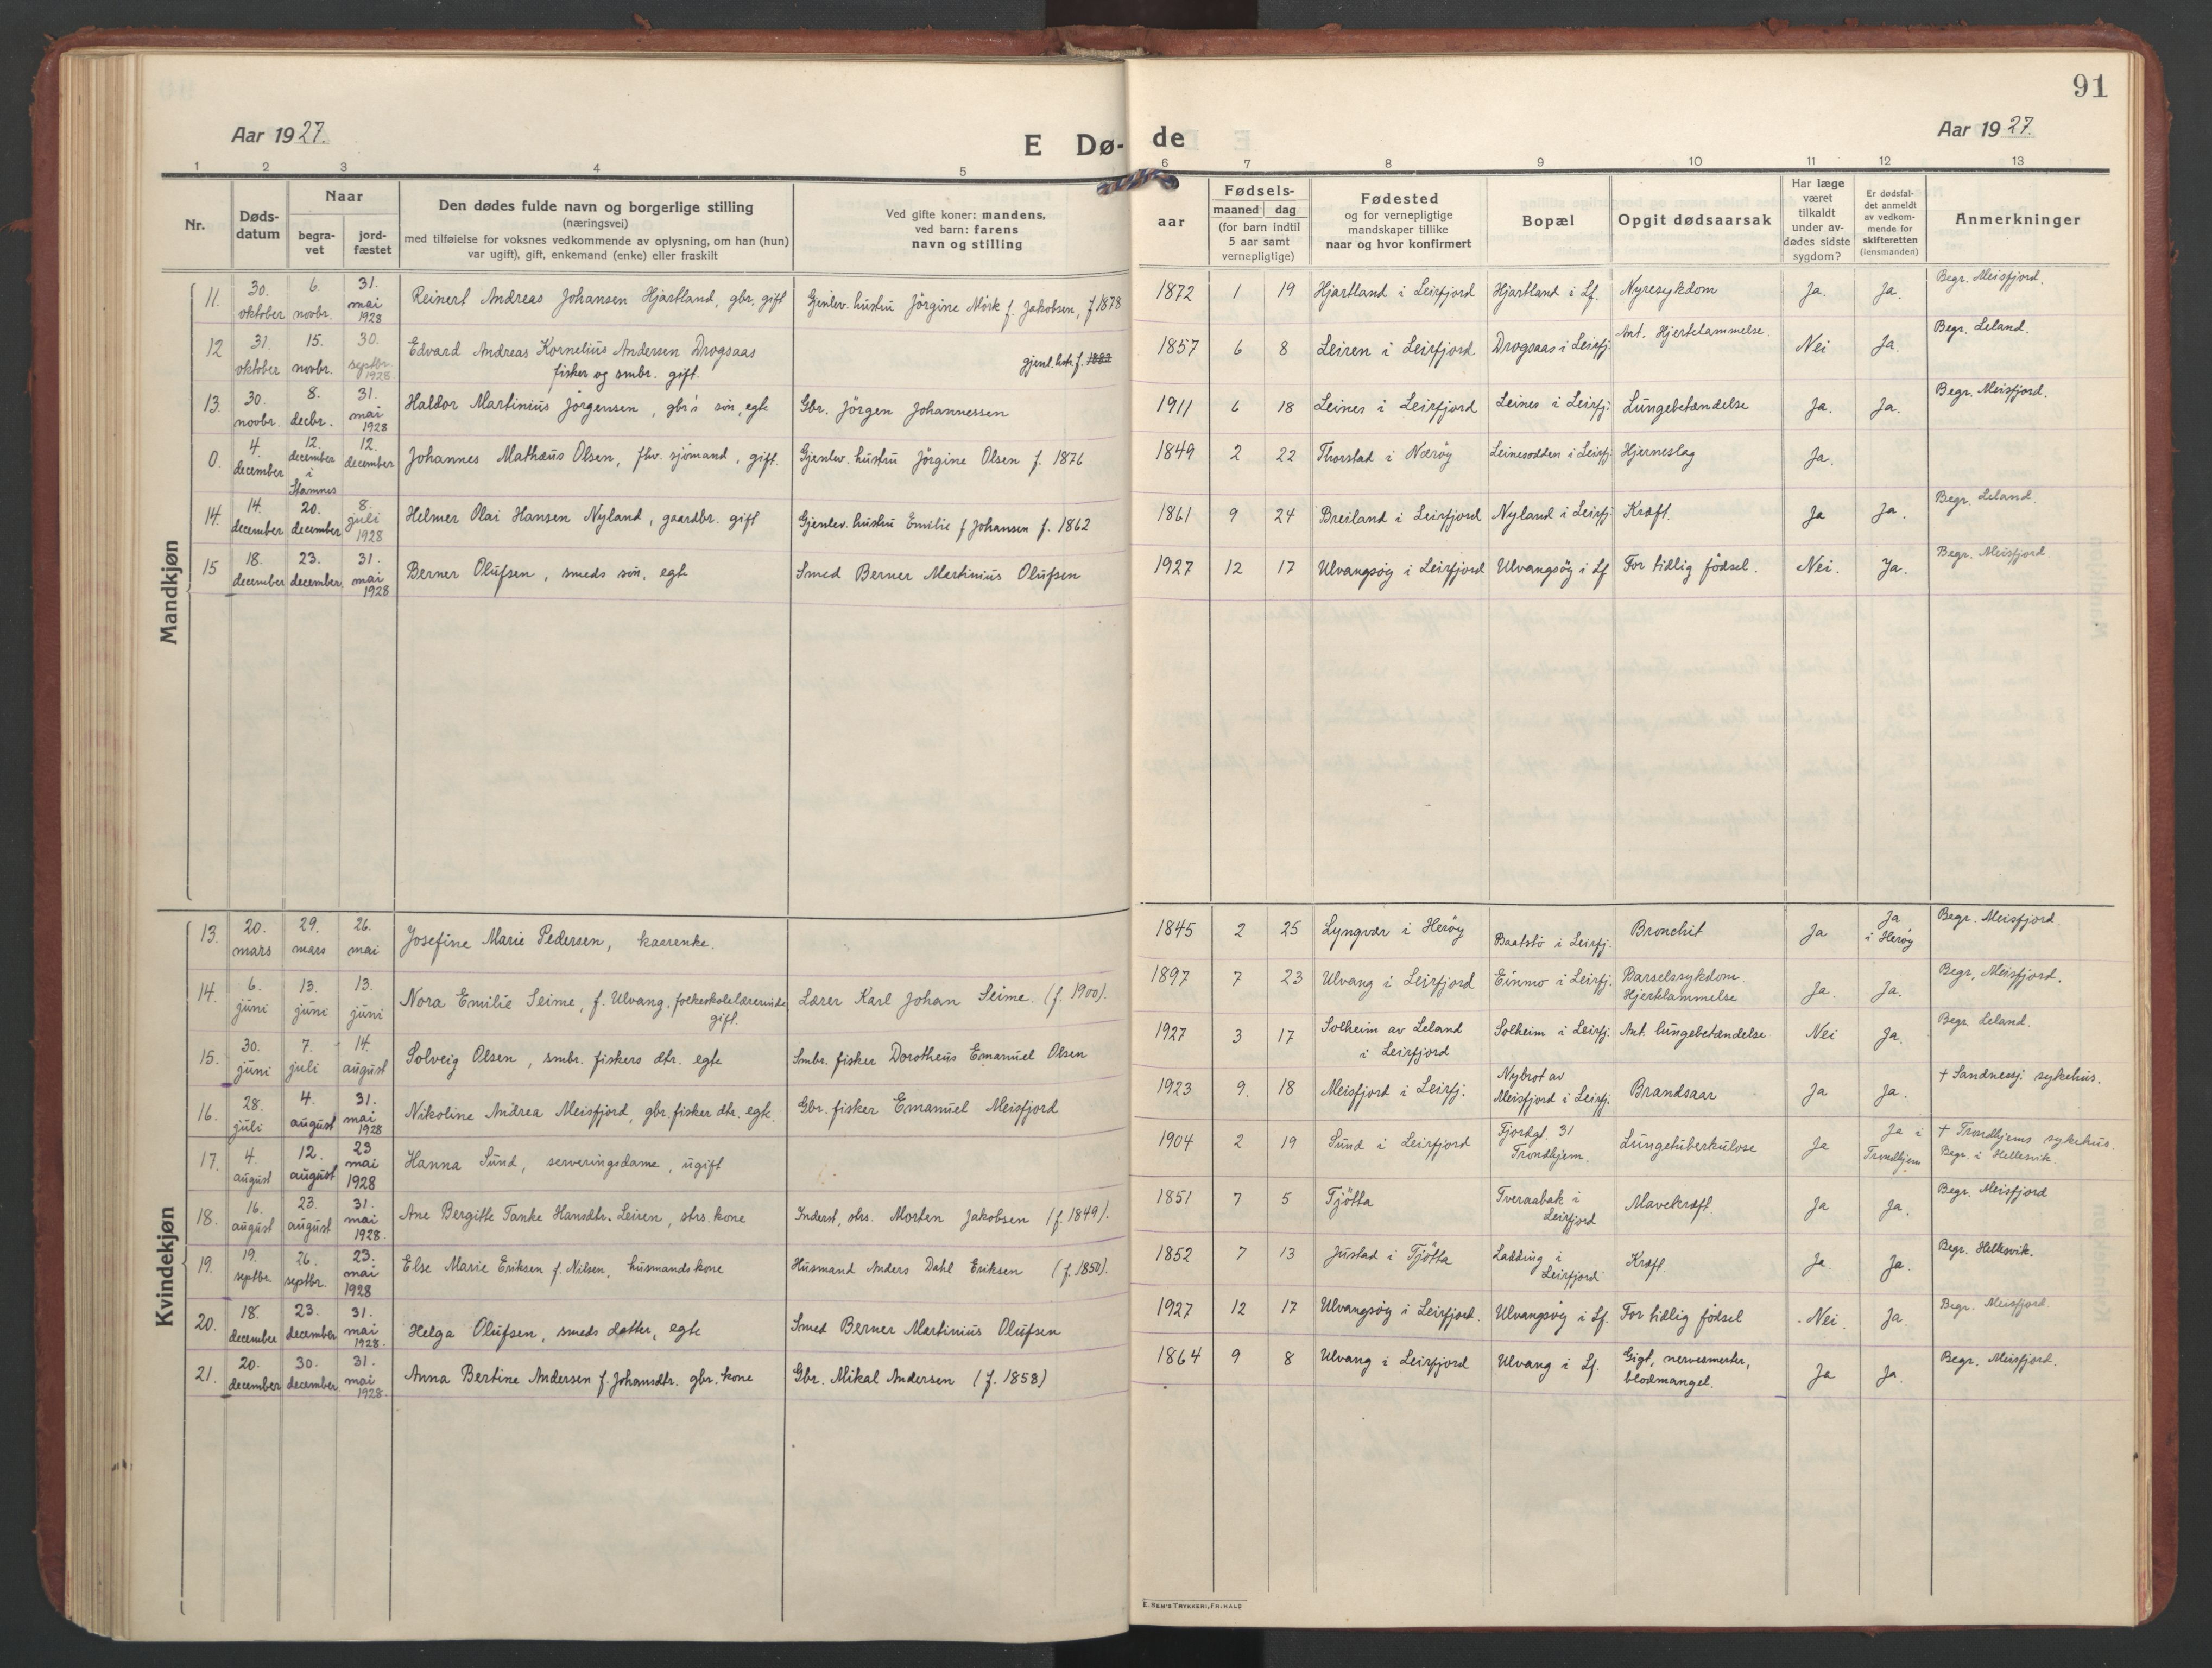 91
Aar 1927.
E Dø-
de
Aar 1927.
1 2 3 4 5 6 7 8 9 10 11 12 13
Nr.
Døds-
datum
Naar
begra-
vet
jord-
fæstet
Den dødes fulde navn og borgerlige stilling
(næringsvei)
med tilføielse for voksnes vedkommende av oplysning, om han (hun)
var ugift), gift, enkemand (enke) eller fraskilt
Ved gifte koner: mandens,
ved barn: farens
navn og stilling
Fødsels-
aar
maaned dag
(for barn indtil
5 aar samt
vernepligtige)
Fødested
og for vernepligtige
mandskaper tillike
naar og hvor konfirmert
Bopæl
Opgit dødsaarsak
Har læge
været
tilkaldt
under av-
dødes sidste
sygdom?
Er dødsfal-
det anmeldt
av vedkom-
mende for
skifteretten
(lensmanden)
Anmerkninger
Mandkjøn
11. 30. oktober 6. novbr. 31. mai 1928 Reinert Andreas Johansen Hjartland, gbr, gift Gjenlev. hustru Jörgine Mörk f. Jakobsen, f 1878 1872 1 19 Hjartland i Leirfjord Hjartland i Lf. Nyresykdom Ja. Ja. Begr. Meisfjord.
12 31. oktober 15. novbr. 30. septbr. 1928. Edvard Andreas Kornelius Andersen Drogsaas
fisker og smbr. gift. gjenl. hstr. f. 1883 1857 6 8 Leiren i Leirfjord Drogsaas i Leirfj. Ant. Hjertelammelse. Nei Ja. Begr. Leland.
13. 30. novbr. 8. decbr. 31. mai 1928 Haldor Martinius Jörgensen, gbr's sön, egte Gbr. Jörgen Johannessen 1911 6 18 Leines i Leirfjord Leines i Leirfj. Lungebetændelse Ja. Ja. Begr. Meisfjord.
0. 4. december 12. december i Stamnes 12. december Johannes Mathæus Olsen, fhv. sjömand, gift. Gjenlev. hustru Jörgine Olsen f. 1876 1849 2 22 Thorstad i Næröy Leinesodden i Leirfj. Hjerneslag Ja.
14. 14. december 20. december 8. juli 1928 Helmer Olai Hansen Nyland, gaardbr. gift Gjenlev. hustru Emilie f Johansen f. 1862 1861 9 24 Breiland i Leirfjord Nyland i Leirfj. Kræft. Ja Ja. Begr. Leland
15 18. december 23. december. 31. mai 1928 Berner Olufsen, smeds sön, egte Smed Berner Martinius Olufsen 1927 12 17 Ulvangsög i Leirfjord Ulvangsög i Lf For tidlig födsel. Nei. Ja. Begr. Meisfjord
Kvindekjøn
13. 20. mars 29. mars 26. mai Josefine Marie Pedersen, kaarenke. 1845 2 25 Lyngvær i Heröy Baatstö i Leirfj. Bronchit Ja Ja i Heröy Begr. Meisfjord.
14. 6. juni 13. juni 13. juni Nora Emilie Seime, f. Ulvang. folkeskolelærerinde,
gift. Lærer Karl Johan Seime. (f. 1900). 1897 7 23 Ulvang i Leirfjord Einmo i Leirfj. Barselssykdom.
Hjertelammelse Ja. Ja. Begr. Meisfjord.
15. 30. juni 7. juli 14. august Solveig Olsen, smbr. fiskers dtr. egte Smbr. fisker Dorotheus Emanuel Olsen 1927 3 17 Solheim av Leland
i Leirfjord Solheim i Leirfj. Ant. lungebetændelse Nei Ja. Begr. Leland.
16. 28. juli 4. august 31. mai 1928 Nikoline Andrea Meisfjord, gbr. fisker dtr. egte. Gbr. fisker Emanuel Meisfjord 1923 9. 18 Meisfjord i Leirfj. Nybrot av
Meisfjord i Leirfj. Brandsaar Ja Ja. + Sandnessj. sykehus.
17. 4. august 12. august 23 mai 1928 Hanna Sund, serveringsdame, ugift 1904 2 19 Sund i Leirfjord Fjordgt. 31
Trondhjem. Lungetuberkulose Ja Ja i
Trondhjem + Trondhjems sykehus.
Begr. i Hellesvik.
18. 16. august 23. august 31. mai 1928. Ane Bergitte Tanke Hansdtr. Leiren, strs. kone Inderst, strs. Morten Jakobsen (f. 1849). 1851 7 5 Tjötta Tveraabak i
Leirfjord Mavekræft. Ja Ja. Begr. Meisfjord
19. 19. septbr. 26. septbr. 23. mai 1928 Else Marie Eriksen f. Nilsen, husmandskone Husmand Anders Dahl Eriksen (f. 1850). 1852 7 13 Justad i Tjötta Ladding i
Leirfjord Kræft. Ja Ja. Begr. Hellesvik.
20. 18. december 23. december 31. mai 1928. Helga Olufsen, smeds datter, egte Smed Berner Martinius Olufsen 1927 12 17 Ulvangsög i Leirfjord. Ulvangsög i Lf. For tidlig födsel Nei. Ja. Begr. Meisfjord.
21. 20. december 30. december. 31. mai 1928. Anna Bertine Andersen f. Johansdtr. gbr. kone Gbr. Mikal Andersen (f. 1858) 1864 9 8 Ulvang i Leirfjord Ulvang i Lf. Gigt, nervesmerter,
blodmangel. Ja Ja. Begr. Meisfjord.
E. SEM'S TRYKKERI, FR. HALD